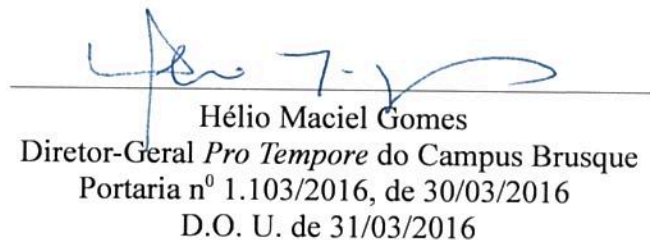 Hélio Maciel Gomes
Diretor-Geral Pro Tempore do Campus Brusque
Portaria nº 1.103/2016, de 30/03/2016
D.O. U. de 31/03/2016